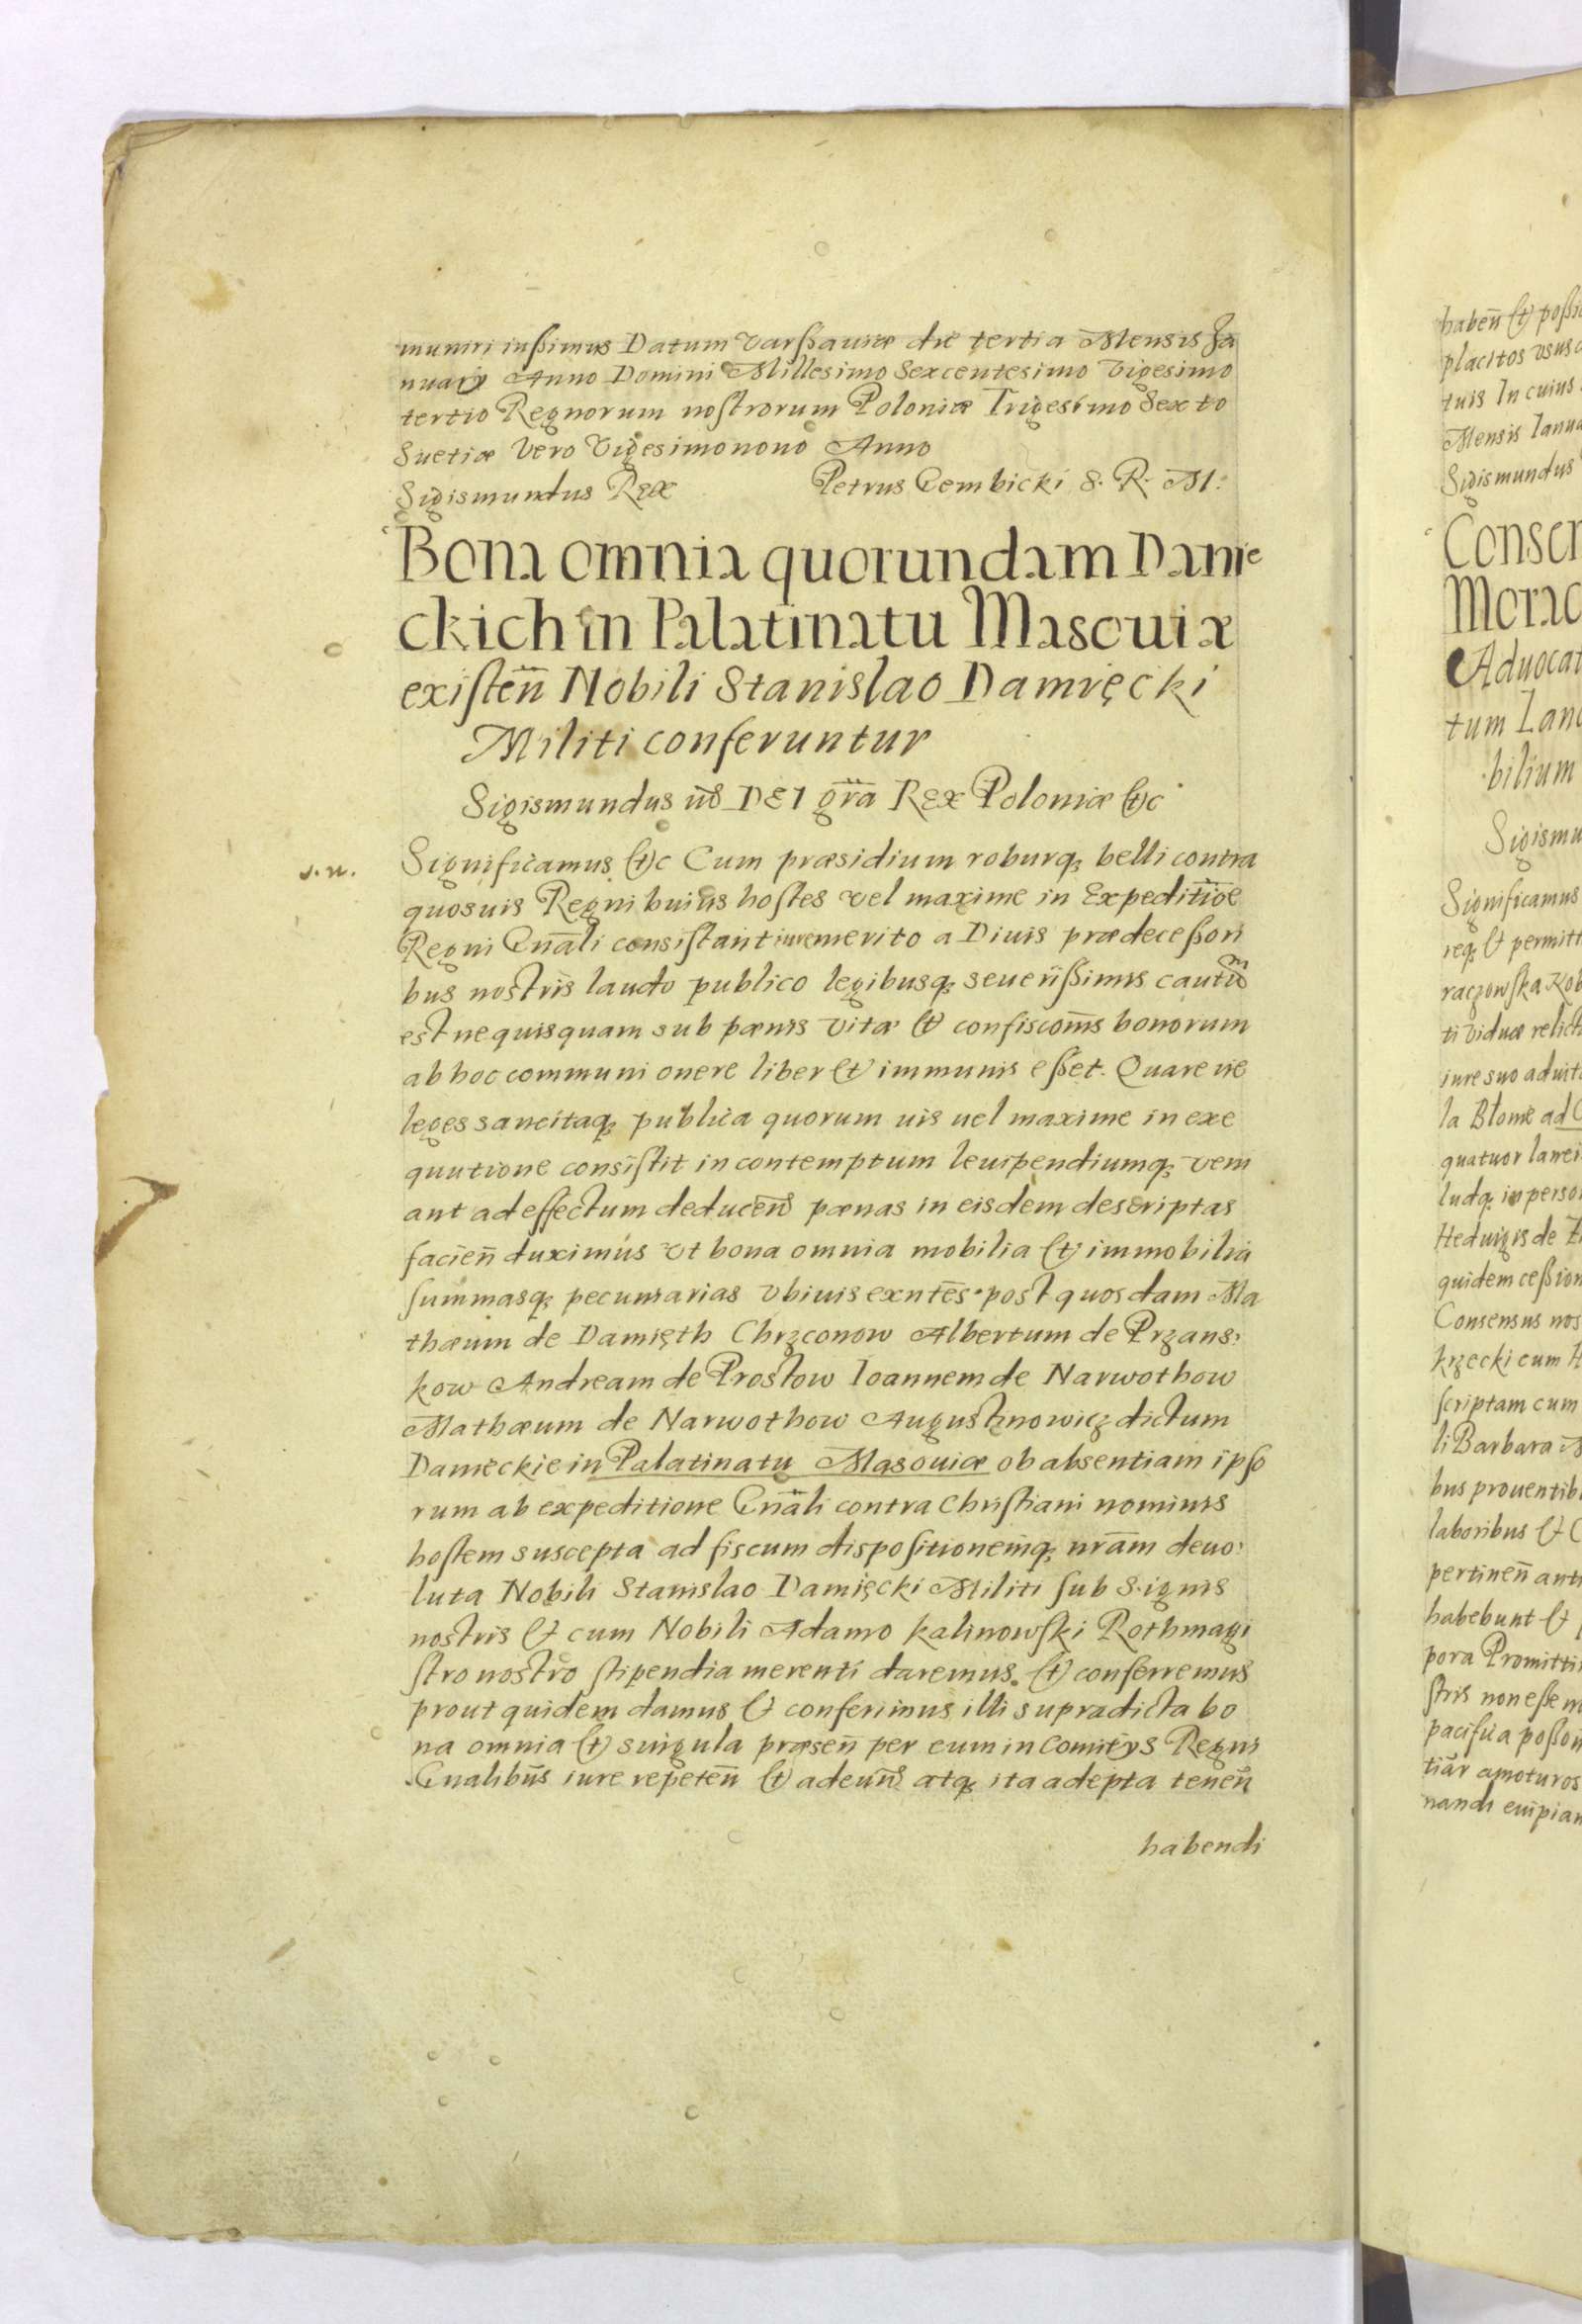 muniri iussimus Datum Varssauiæ die tertia Mensis Ja
nuarij Anno Domini Millesimo Sexcentesimo Vigesimo
tertio Regnorum nostrorum Poloniæ Trigesimo Sexto
Suetiæ Vero Vigesimonono Anno
Sigismundus Rex Petrus Gembicki S. R. M:
Bona omnia quorundam Danie
ckich in Palatinatu Masouiæ
existen̄ Nobili Stanislao Damięcki
Militi conferuntur
Sigismundus IIIS DEI gr̄a Rex Poloniæ &c
s. n.
Significamus &c Cum præsidium roburq3 belli contra
quosuis Regni huius hostes vel maxime in Expeditiōe
Regni Gn̄ali consistant iure merito a Diuis prædecessori
bus nostris laudo publico legibusq3 seuerissimis cautu͞m
est ne quisquam sub pœnis vitæ & confiscōnis bonorum
ab hoc communi onere liber & immunis esset. Quare ne
leges sancitaq3 publica quorum uis uel maxime in exe
quutione consistit in contemptum leuipendiumq3 veni
ant ad effectum deducen̄s pœnas in eisdem descriptas
facien̄ duximus vt bona omnia mobilia & immobilia
summasq3 pecuniarias vbiuis exn̄tes post quosdam Ma
thæum de Damięth Chrzconow Albertum de Przans:
kow Andream de Prostow Ioannem de Narwothow
Mathæum de Narwothow Augustinowicz dictum
Dameckie in Palatinatu Masouiæ ob absentiam ipso
rum ab expeditione Gn̄ali contra Christiani nominis
hostem suscepta ad fiscum dispositionemq3 nr̄am deuo:
luta Nobili Stanislao Damięcki Militi sub Signis
nostris & cum Nobili Adamo Kalinowski Rothmagi
stro nostro stipendia merenti daremus & conferremus
prout quidem damus & conferimus illi supradicta bo
na omnia & singula præsen̄ per eum in Comitijs Regni
Gnalibus̄ iure repeten̄ & adeun̄d atq3 ita adepta tenen̄
habendi
haben̄ & possid
placitos vsus
tuis In cuius
Mensis Ianua
Sigismundus
Consen
Morac
Aduocat
tum Lanc
bilium
Sigismu
Significamus
req3 & permitt
raczowska Kob
ti viduæ relict
iure suo aduit
la Blonie ad
quatuor lanei
ludq3 in perso
Heduigis de
quidem cession
Consensus nos
krzecki cum
scriptam cum
li Barbara
bus prouentib
laboribus &
pertinen̄ anti
habebunt &
pora Promitti
stris non esse
pacifica posson
tiār amoturos
nandi cuipian